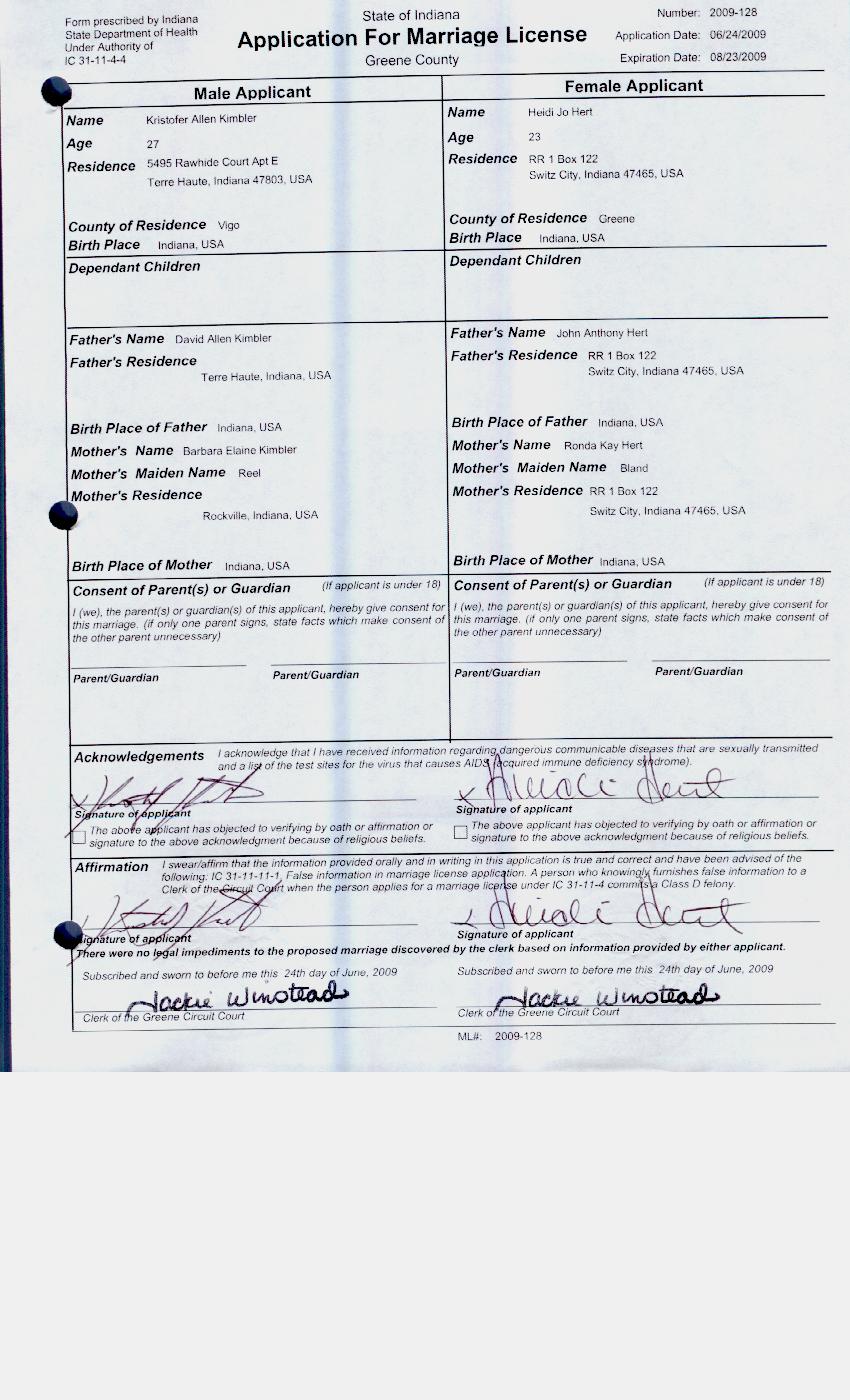 Form prescribed by Indiana
State Department of Health
Under Authority of
IC 31-11-4-4
State of Indiana
Application For Marriage License
Greene County
Number: 2009-128
Application Date: 06/24/2009
Expiration Date: 08/23/2009
Male Applicant
Name Kristofer Allen Kimbler
Age 27
Residence 5495 Rawhide Court Apt E
Terre Haute, Indiana 47803, USA
County of Residence Vigo
Birth Place Indiana, USA
Dependant Children
Father's Name David Allen Kimbler
Father's Residence
Terre Haute, Indiana, USA
Birth Place of Father Indiana, USA
Mother's Name Barbara Elaine Kimbler
Mother's Maiden Name Reel
Mother's Residence
Rockville, Indiana, USA
Birth Place of Mother Indiana, USA
Consent of Parent(s) or Guardian (If applicant is under 18)
I (we), the parent(s) or guardian(s) of this applicant, hereby give consent for
this marriage. (if only one parent signs, state facts which make consent of
the other parent unnecessary)
Parent/Guardian Parent/Guardian
Female Applicant
Name Heidi Jo Hert
Age 23
Residence RR 1 Box 122
Switz City, Indiana 47465, USA
County of Residence Greene
Birth Place Indiana, USA
Dependant Children
Father's Name John Anthony Hert
Father's Residence RR 1 Box 122
Switz City, Indiana 47465, USA
Birth Place of Father Indiana, USA
Mother's Name Ronda Kay Hert
Mother's Maiden Name Bland
Mother's Residence RR 1 Box 122
Switz City, Indiana 47465, USA
Birth Place of Mother Indiana, USA
Consent of Parent(s) or Guardian (If applicant is under 18)
I (we), the parent(s) or guardian(s) of this applicant, hereby give consent for
this marriage. (if only one parent signs, state facts which make consent of
the other parent unnecessary)
Parent/Guardian Parent/Guardian
Acknowledgements I acknowledge that I have received information regarding dangerous communicable diseases that are sexually transmitted
and a list of the test sites for the virus that causes AIDS (acquired immune deficiency syndrome).
X X Heidi Hert
Signature of applicant Signature of applicant
The above applicant has objected to verifying by oath or affirmation or
signature to the above acknowledgment because of religious beliefs.
The above applicant has objected to verifying by oath or affirmation or
signature to the above acknowledgment because of religious beliefs.
Affirmation I swear/affirm that the information provided orally and in writing in this application is true and correct and have been advised of the
following: IC 31-11-11-1, False information in marriage license application. A person who knowingly furnishes false information to a
Clerk of the Circuit Court when the person applies for a marriage license under IC 31-11-4 commits a Class D felony.
X X Heidi Hert
Signature of applicant Signature of applicant
There were no legal impediments to the proposed marriage discovered by the clerk based on information provided by either applicant.
Subscribed and sworn to before me this 24th day of June, 2009
Jackie Winstead
Clerk of the Greene Circuit Court
Subscribed and sworn to before me this 24th day of June, 2009
Jackie Winstead
Clerk of the Greene Circuit Court
ML#: 2009-128